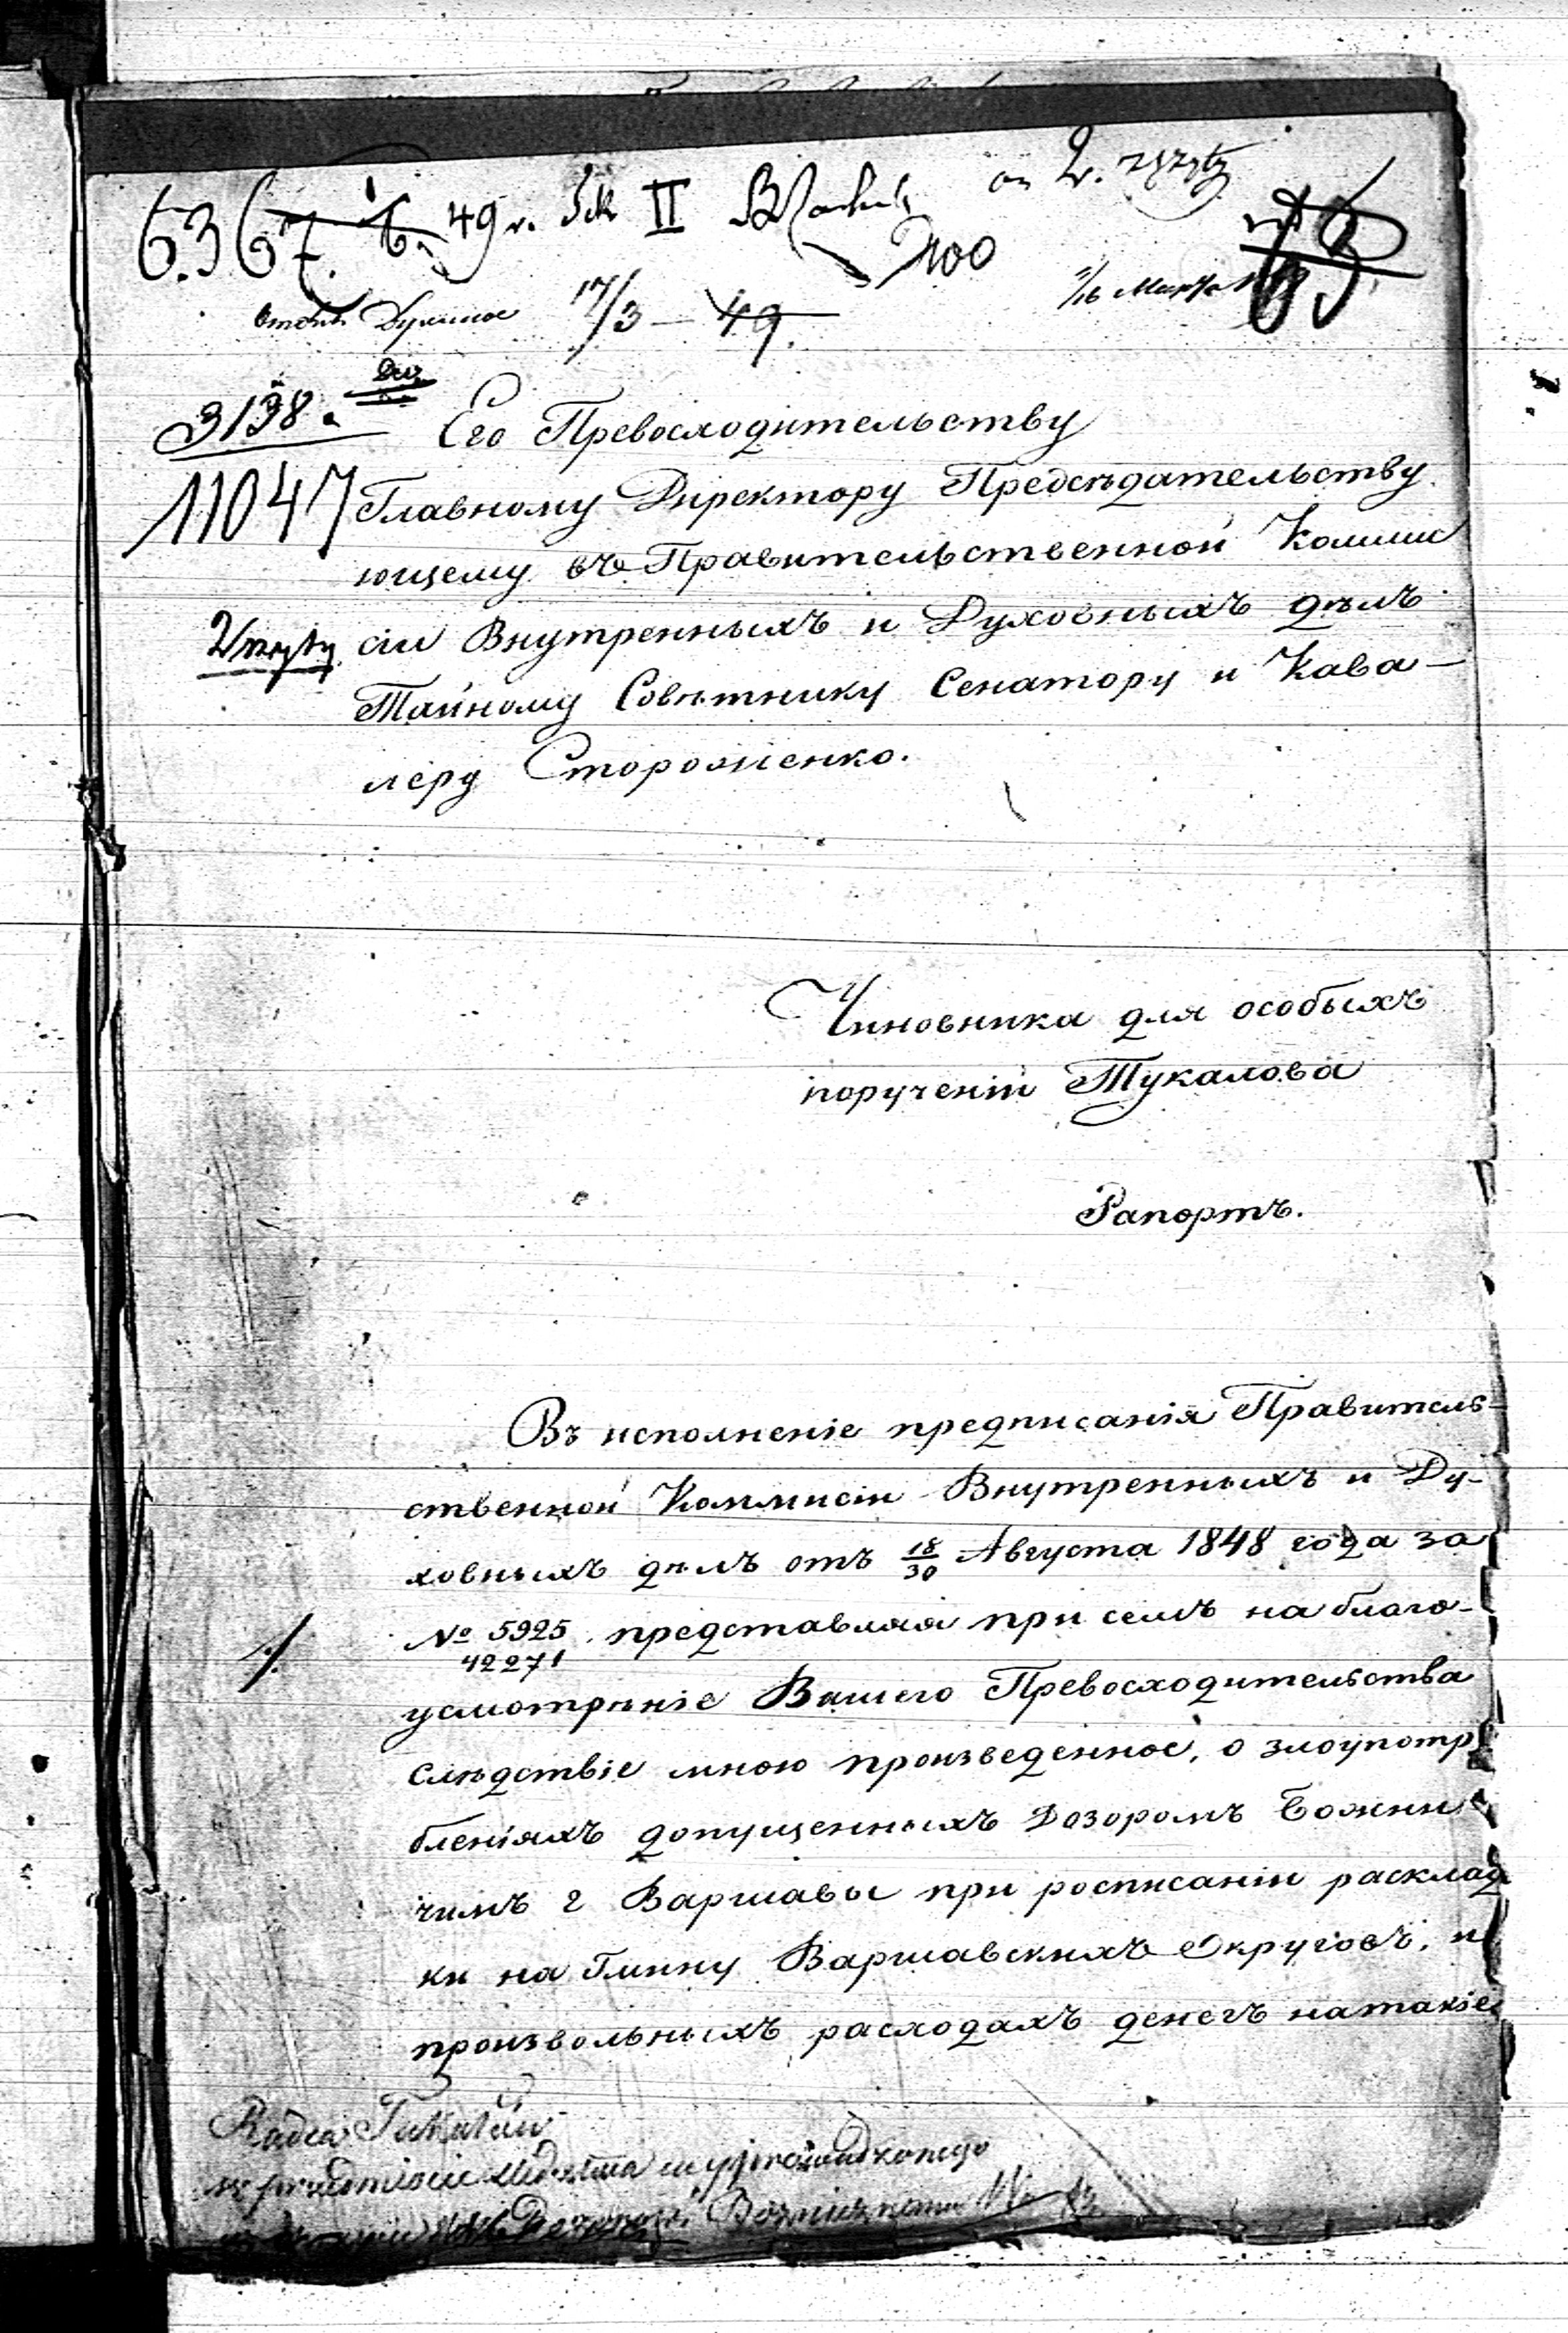 6367. 49 r. II
100
17/3 — 49.
4/16 Марта
3138.
Его Превосходительству
11047 Главному Директору Предсѣдательству
ющему въ Правительственной Коммис
сіи Внутренныхъ и Духовныхъ дѣлъ
Тайному Совѣтнику Сенатору и Кава-
леру Стороженко.
Чиновника для особыхъ
порученій Тукалова
Рапортъ.
Въ исполненіе предписанія Правитель-
ственной Коммисіи Внутренныхъ и Ду-
ховныхъ дѣлъ отъ 18/30 Августа 1848 года за
№ 5925/42271 представляя при семъ на благо-
усмотрѣніе Вашего Превосходительства
слѣдствіе мною произведенное, о злоупотре
бленіяхъ допущенныхъ Дозоромъ Божни
чимъ г Варшавы при росписаніи расклад
ки на Гмину Варшавскихъ Округовъ, и
произвольныхъ расходахъ денегъ на такіе
Radca Tukałow
w przedmiocie śledztwa wyprowadzonego